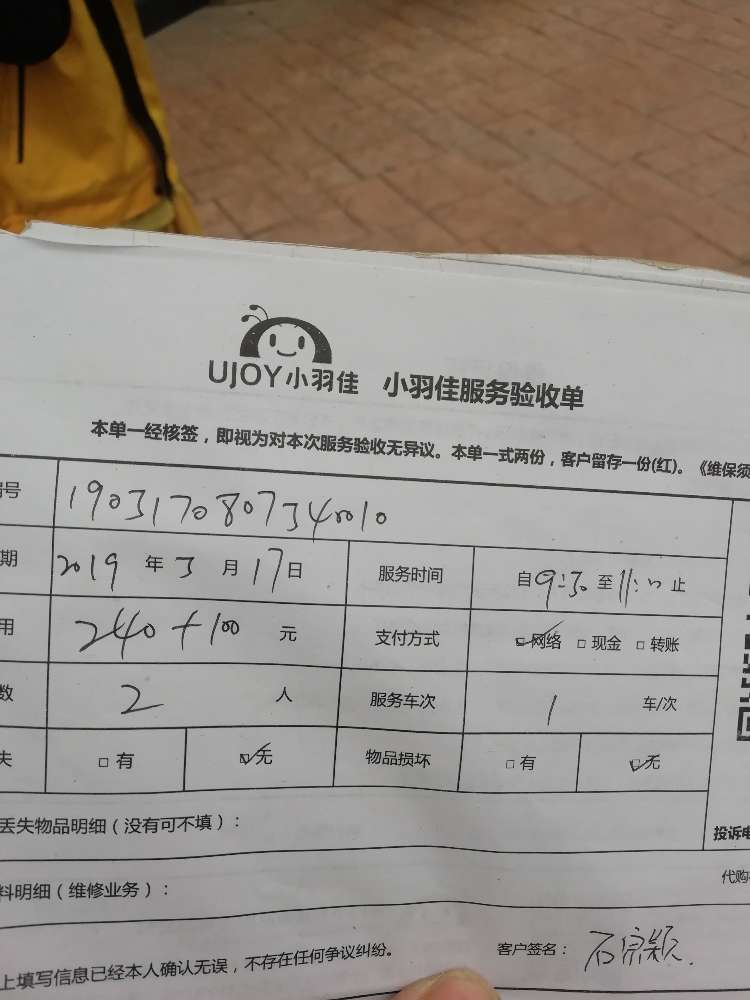 UJOY小羽佳 小羽佳服务验收单
本单一经核签，即视为对本次服务验收无异议。本单一式两份，客户留存一份(红)。《维保须
号 1903170807340010
期 2019 年 3 月 17 日 服务时间 自 9:30 至 11:00 止
用 240+100 元 支付方式 网络 现金 转账
数 2 人 服务车次 1 车/次
失 有 无 物品损坏 有 无
丢失物品明细（没有可不填）：
投诉电
料明细（维修业务）：
代购
上填写信息已经本人确认无误，不存在任何争议纠纷。 客户签名：石宗颖